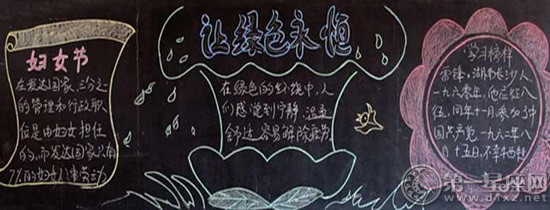 妇女节
在发达国家，三分之一
的管理和行政职
位是由妇女担任
的，而发达国家只有
让绿色永恒
在绿色的环境中，人
们感觉到宁静、温柔
学习榜样
雷锋，湖南长沙人
一九六零年，他应征入
伍，同年十一月参加了中
国共产党，一九六二年八
月十五日，不幸牺牲
第一星座网
www.d1xz.net